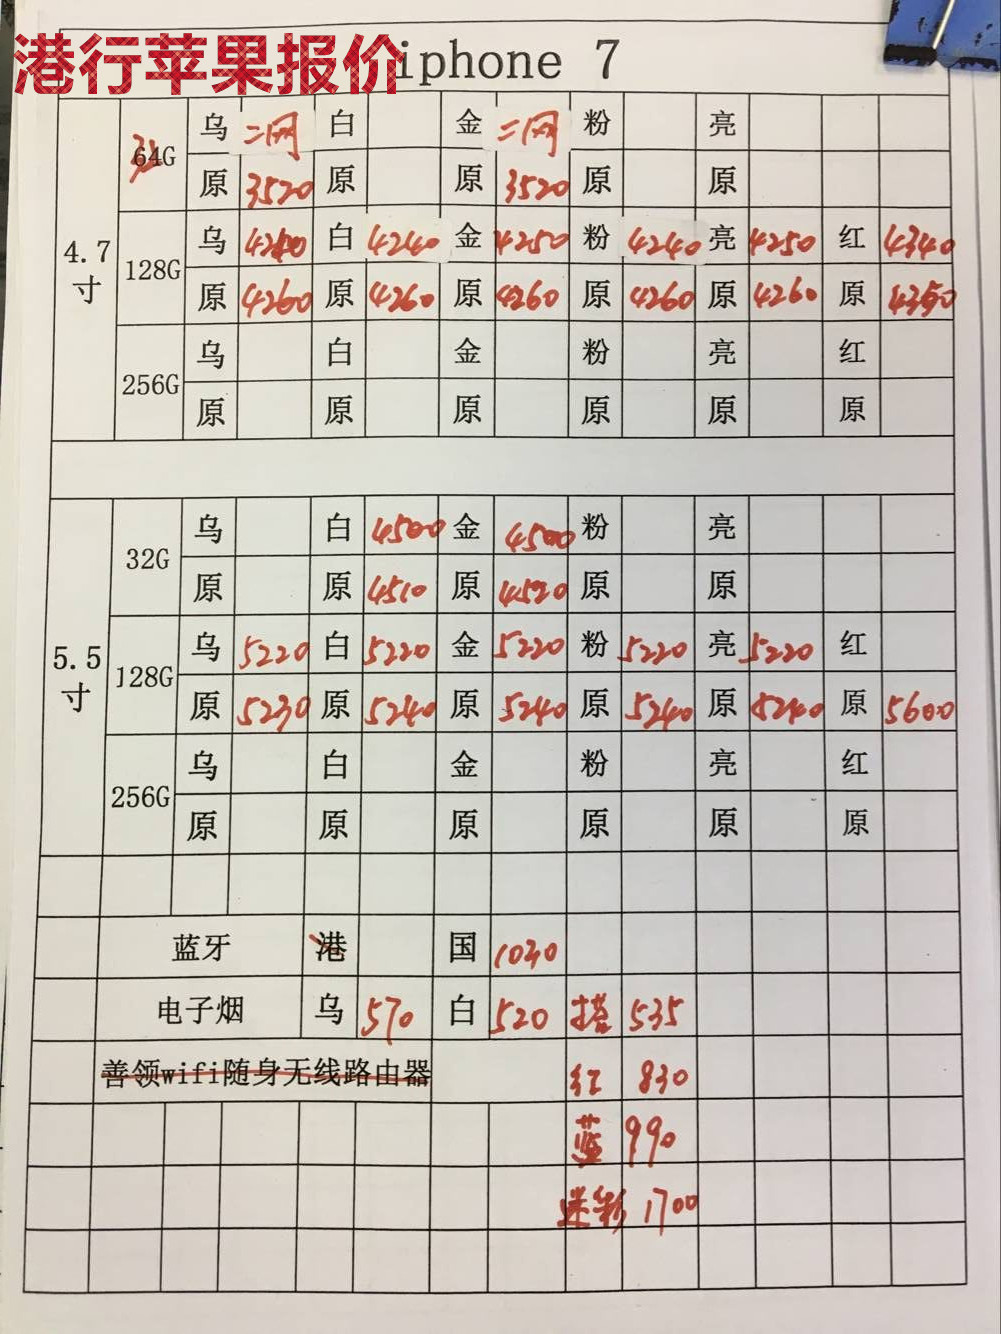 港行苹果报价
iphone 7
4.7寸
64G
乌 二网 白 金 二网 粉 亮
原 3520 原 原 3520 原 原
128G
乌 白 4240 金 4250 粉 4240 亮 4250 红 4340
原 4260 原 4260 原 4260 原 4260 原 4260 原
256G
乌 白 金 粉 亮 红
原 原 原 原 原 原
5.5寸
32G
乌 白 4500 金 4500 粉 亮
原 原 4510 原 4520 原 原
128G
乌 5220 白 5220 金 5220 粉 5220 亮 5220 红
原 5230 原 5240 原 5240 原 5240 原 5240 原 5600
256G
乌 白 金 粉 亮 红
原 原 原 原 原 原
蓝牙 港 国 1030
电子烟 乌 570 白 520 搭 535
善领wifi随身无线路由器 红 830
蓝 990
迷彩 1700